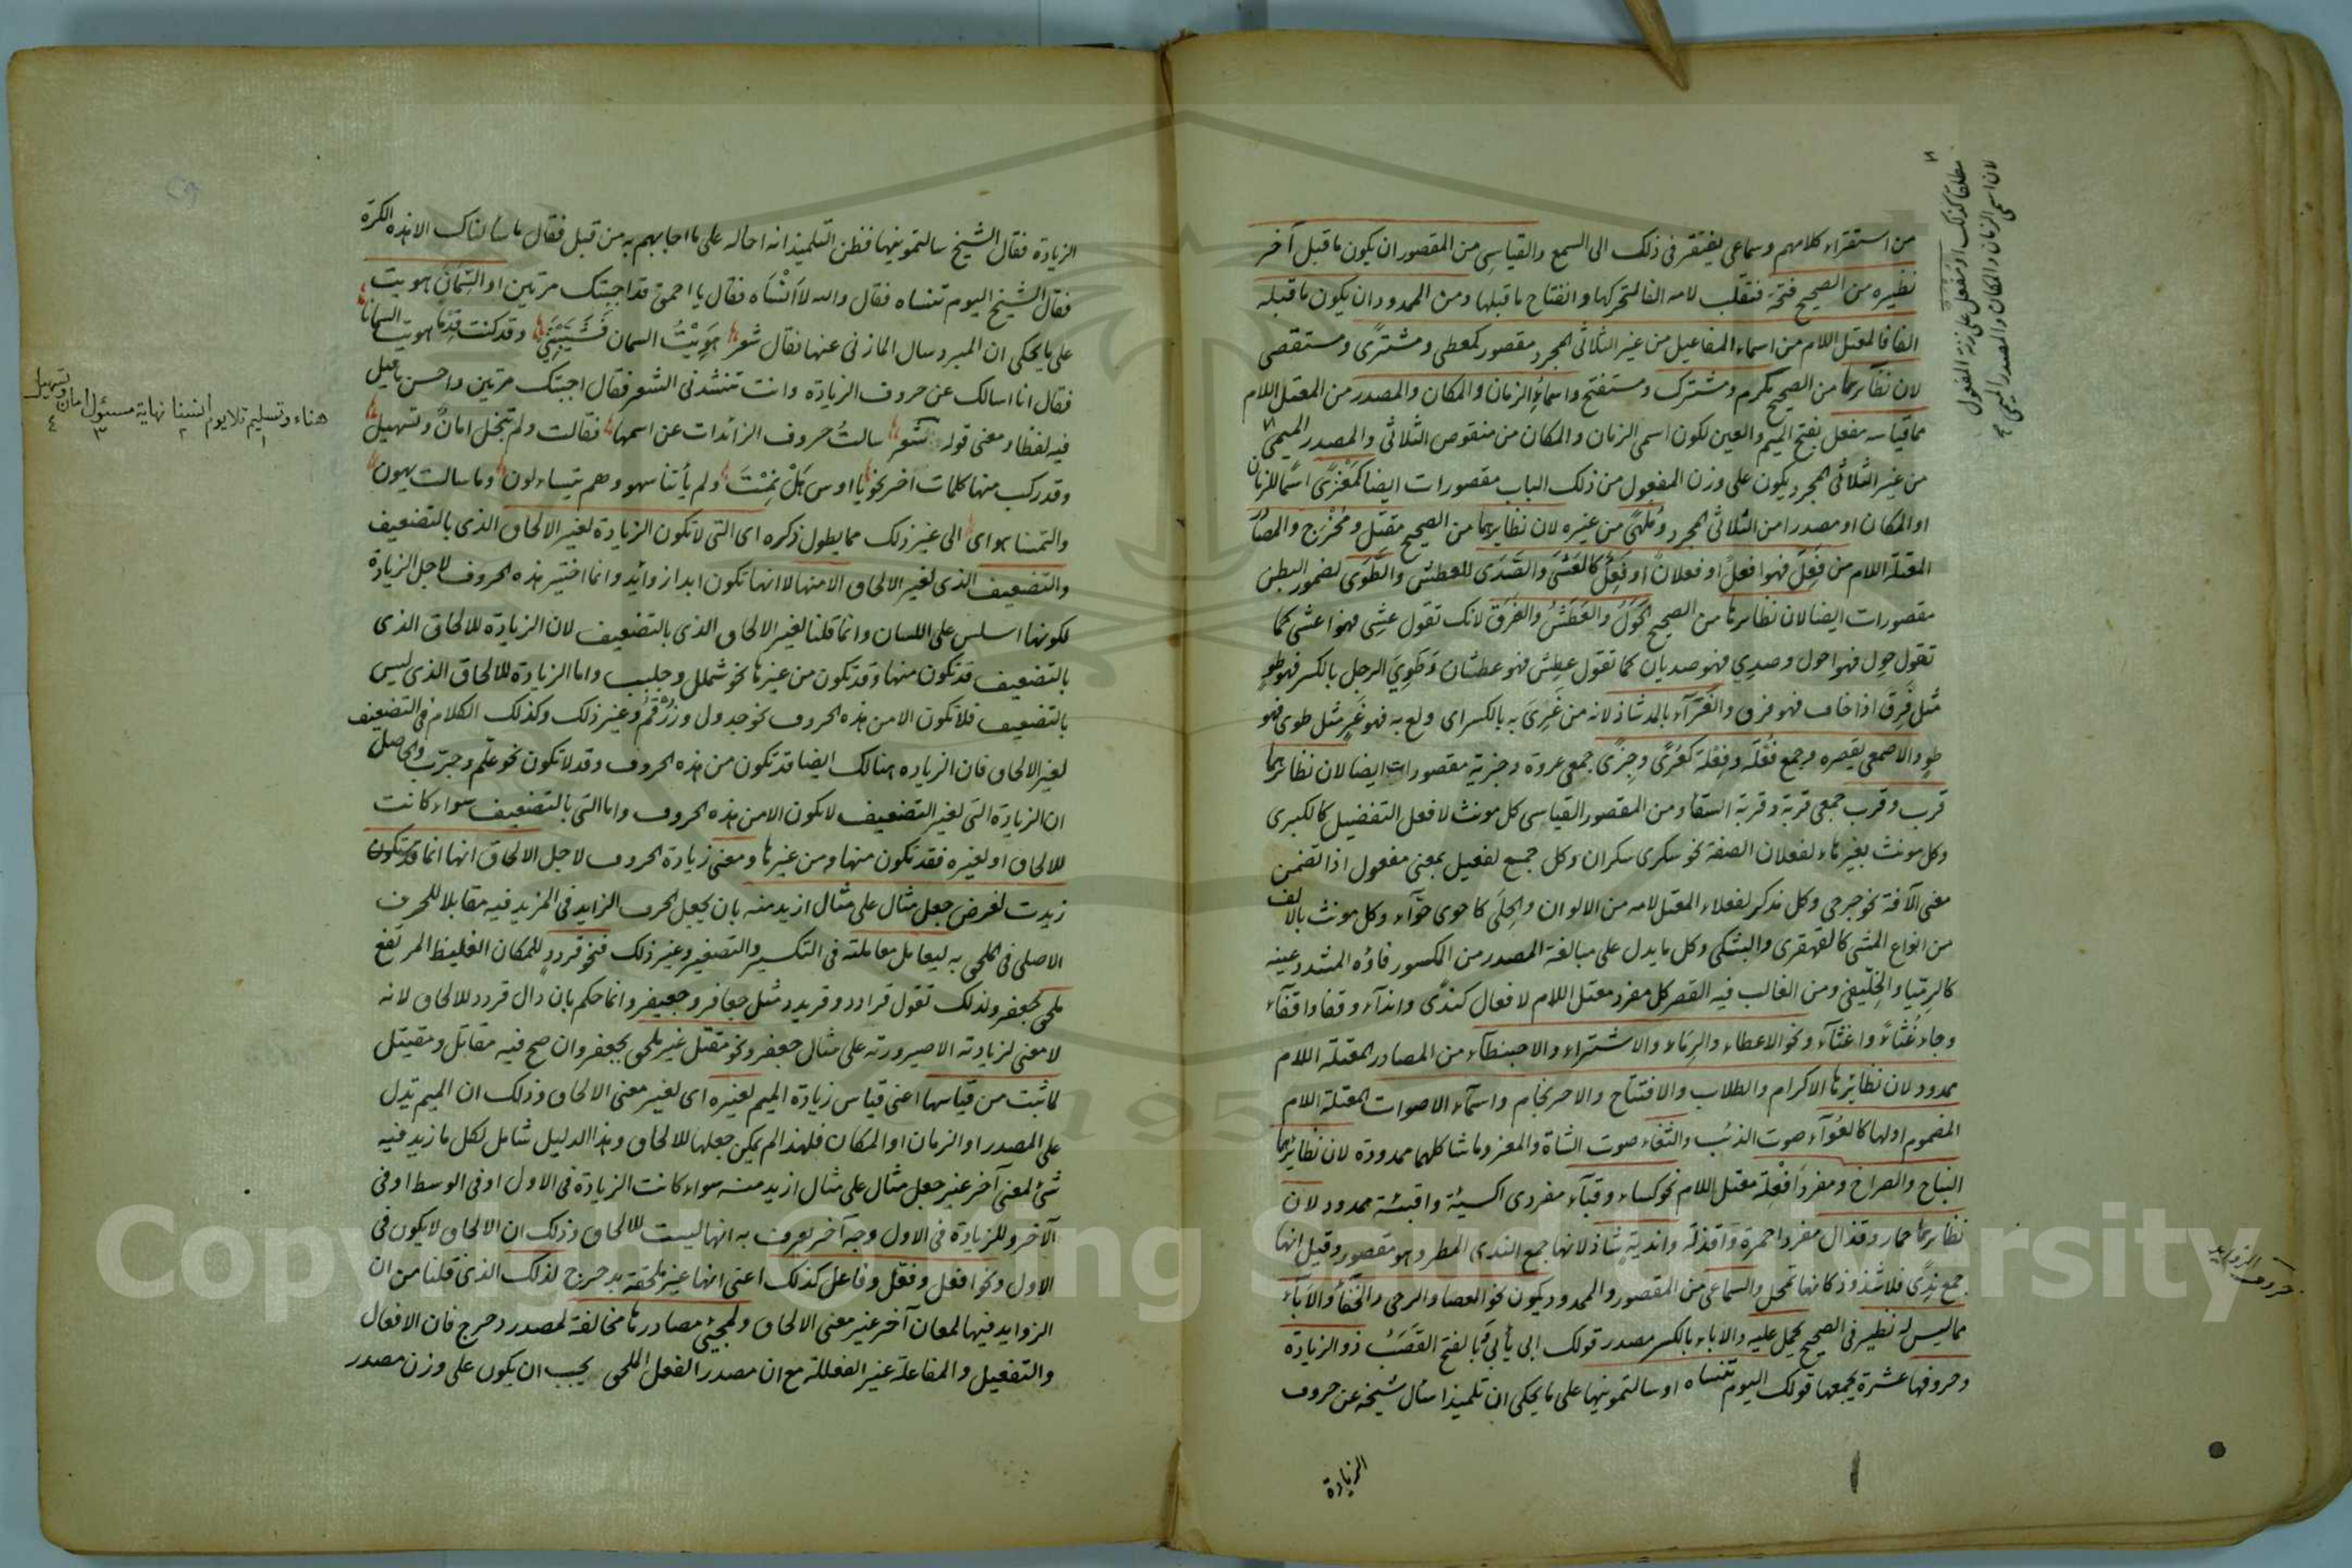 من استقراء كلامهم وسماعى يفتقر فى ذلك الى السمع والقياسى من المقصور ان يكون ما قبل آخر
نظيره من الصحيح فتحة فتقلب لامه الفا لتحركها وانفتاح ما قبلها ومن الممدود ان يكون ما قبله
الفا فالمعتل اللام من اسماء المفاعيل من غير الثلاثى المجرد مقصور كمعطى ومشترًى ومستقصى
لان نظائرهما من الصحيح مكرم ومشترك ومستفتح واسماء الزمان والمكان والمصدر من المعتل اللام
مما قياسه مفعل بفتح الميم والعين لكون اسمى الزمان والمكان من منقوص الثلاثى والمصدر الميمى
من غير الثلاثى المجرد يكون على وزن المفعول من ذلك الباب مقصورات ايضا كمَغْزًى اسمًا للزمان
او المكان او مصدرا من الثلاثى المجرد ومُلهىً من غيره لان نظايرهما من الصحيح مقتل ومُخْرَج والمصادر
المعتلة اللام من فَعِلَ فهو افعل او فعلان او فَعِلٌ كالعَشَى والصَّدَى للعطش والطَّوَى لضمور البطن
مقصورات ايضا لان نظايرها من الصحيح الحَوَلُ والعَطَشُ والفَرَق لانك تقول عشِى فهو اعشى كما
تقول حول فهو احول وصدِي فهو صديان كما تقول عطِش فهو عطشان وطَوِيَ الرجل بالكسر فهو طوٍ
مثل فَرِقَ اذا خاف فهو فرق والغَرَآء بالمد شاذ لانه من غَرِىَ به بالكسر اى ولع به فهو غَرٍ مثل طوى فهو
طوٍ والاصمعى يقصره وجمع فُعْلَة وفِعْلة كعُرًى وجِزًى جمعى عروة وجزية مقصورات ايضا لان نظائرهما
قرب وقرب جمعى قربة وقربة السقا ومن المقصور القياسى كل مونث لافعل التفضيل كالكبرى
وكل مونث بغير هاء لفعلان الصفة نحو سكرى سكران وكل جمع لفعيل بمعنى مفعول اذا تضمن
معنى الآفة نحو جرحى وكل مذكر لفعلاء المعتل لامه من الالوان والحِلَى كاحوى حوّآء وكل مونث بالالف
من انواع المشى كالقهقرى والبشكى وكل ما يدل على مبالغة المصدر من المكسور فاؤه المشدد عينه
كالرمّيا والخِلّيفى ومن الغالب فيه القصر كل مفرد معتل اللام لافعال كندًى وانداء وقفا واقفآء
وجاء غُثآءً واغثآء ونحو الاعطاء والرِمَاء والاشتراء والاحبنطآء من المصادر المعتلة اللام
ممدود لان نظائرها الاكرام والطلاب والافتتاح والاحرنجام واسمآء الاصوات المعتلة اللام
المضموم اولها كالعُوَآء صوت الذئب والثغاء صوت الشاة والمعز وما شاكلهما ممدودة لان نظائرهما
النباح والصراخ ومفرد اَفْعِلة معتل اللام نحو كساء وقبآء مفردى اكسية واقبئة ممدود لان
نظايرهما حمار وقذال مفردا احمرة وَاقذلة وانديةٍ شاذ لانها جمع الندى المطر وهو مقصور وقيل انها
جمع نِدًى فلا شذوذ كانها تحمل والسماعى من المقصور والممدود يكون نحو العصا والرحى والخَفَآء والاَبَآء
مما ليس له نظير فى الصحيح يحمل عليه والاباء بالكسر مصدر قولك ابى يأبى وَبالفتح القَصَبُ ذو الزيادة
وحروفها عشرة يجمعها قولك اليوم تنساه او سالتمونيها على ما يحكى ان تلميذا سال شيخه عن حروف
الزيادة
لان اسمى الزمان والمكان والمصدر الميمى
مطلقا كذلك او مفعل على زنة المفعول
حروف الزوايد
الزيادة فقال الشيخ سالتمونيها فظن التلميذ انه احاله على ما اجابهم به من قبل فقال ما سألناك الا هذه الكرة
فقال الشيخ اليوم تنساه فقال والله لا اَنْسَاه فقال يا احمق قد اجبتك مرتين او السِمَانَ هويت
على ما يحكى ان المبرد سال المازنى عنها فقال شعر هَوِيْتُ السمان فَشَيَّبْنَنِي وقد كنت قِدْمًا هويت السمانا
فقال انا اسالك عن حروف الزيادة وانت تنشدنى الشعر فقال اجبتك مرتين واحسن ما قيل
فيه لفظا ومعنى قوله شعر سالتُ حروف الزائدات عن اسمها فقالت ولم تبخل امانٌ وتسهيلُ
وقد ركب منها كلمات اخر نحو يا اوس هَلْ نِمْتَ ولم يأتنا سهو وهم يتساءلون وما سالت يهون
والتمسنا هواى الى غير ذلك مما يطول ذكره اى التى لا تكون الزيادة لغير الالحاق الذى بالتضعيف
والتضعيف الذى لغير الالحاق الا منها لا انها تكون ابدا زوائد وانما اختير هذه الحروف لاجل الزيادة
لكونها اسلس على اللسان وانما قلنا لغير الالحاق الذى بالتضعيف لان الزيادة للالحاق الذى
بالتضعيف قد تكون منها وقد تكون من غيرها نحو شملل وجلبب واما الزيادة للالحاق الذى ليس
بالتضعيف فلا تكون الا من هذه الحروف نحو جدول وزُرْقُمٌ وغير ذلك وكذلك الكلام فى التضعيف
لغير الالحاق فان الزياده هنالك ايضا قد تكون من هذه الحروف وقد لا تكون نحو علّم وجرّب والحاصل
ان الزيادة التى لغير التضعيف لا يكون الا من هذه الحروف واما التى بالتضعيف سواء كانت
للالحاق او لغيره فقد تكون منها ومن غيرها ومعنى زيادة الحروف لاجل الالحاق انها انما
زيدت لغرض جعل مثال على مثال ازيد منه بان يجعل الحرف الزايد فى المزيد فيه مقابلا للحرف
الاصلى فى الملحق به ليعامل معاملته فى التكسير والتصغير وغير ذلك فنحو قرددٍ للمكان الغليظ المرتفع
ملحق بجعفر ولذلك تقول قرادد وقريدد مثل جعافر وجعيفر وانما حكم بان دال قردد للالحاق لانه
لا معنى لزيادته الا صيرورته على مثال جعفر ونحو مقتل غير ملحق بجعفر وان صح فيه مقاتل ومقيتل
لما ثبت من قياسها اعنى قياس زيادة الميم لغيره اى لغير معنى الالحاق وذلك ان الميم تدل
على المصدر او الزمان او المكان فلهذا لم يمكن جعلها للالحاق وهذا الدليل شامل لكل ما زيد فيه
شئ لمعنى آخر غير جعل مثال على مثال ازيد منه سواء كانت الزيادة فى الاول او فى الوسط او فى
الآخر وللزيادة فى الاول وجه آخر يعرف به انها ليست للالحاق وذلك ان الالحاق لا يكون فى
الاول ونحو افعل وفعّل وفاعل كذلك اعنى انها غير ملحقة بدحرج لذلك الذى قلنا من ان
الزوايد فيها لمعان آخر غير معنى الالحاق ولمجئ مصادرها مخالفة لمصدر دحرج فان الافعال
والتفعيل والمفاعلة غير الفعللة مع ان مصدر الفعل الملحق يجب ان يكون على وزن مصدر
هناء وتسليم تلا يوم انسنا نهاية مسئول امان وتسهيل
١ ٢ ٣ ٤
Copyright © King Saud University
1957